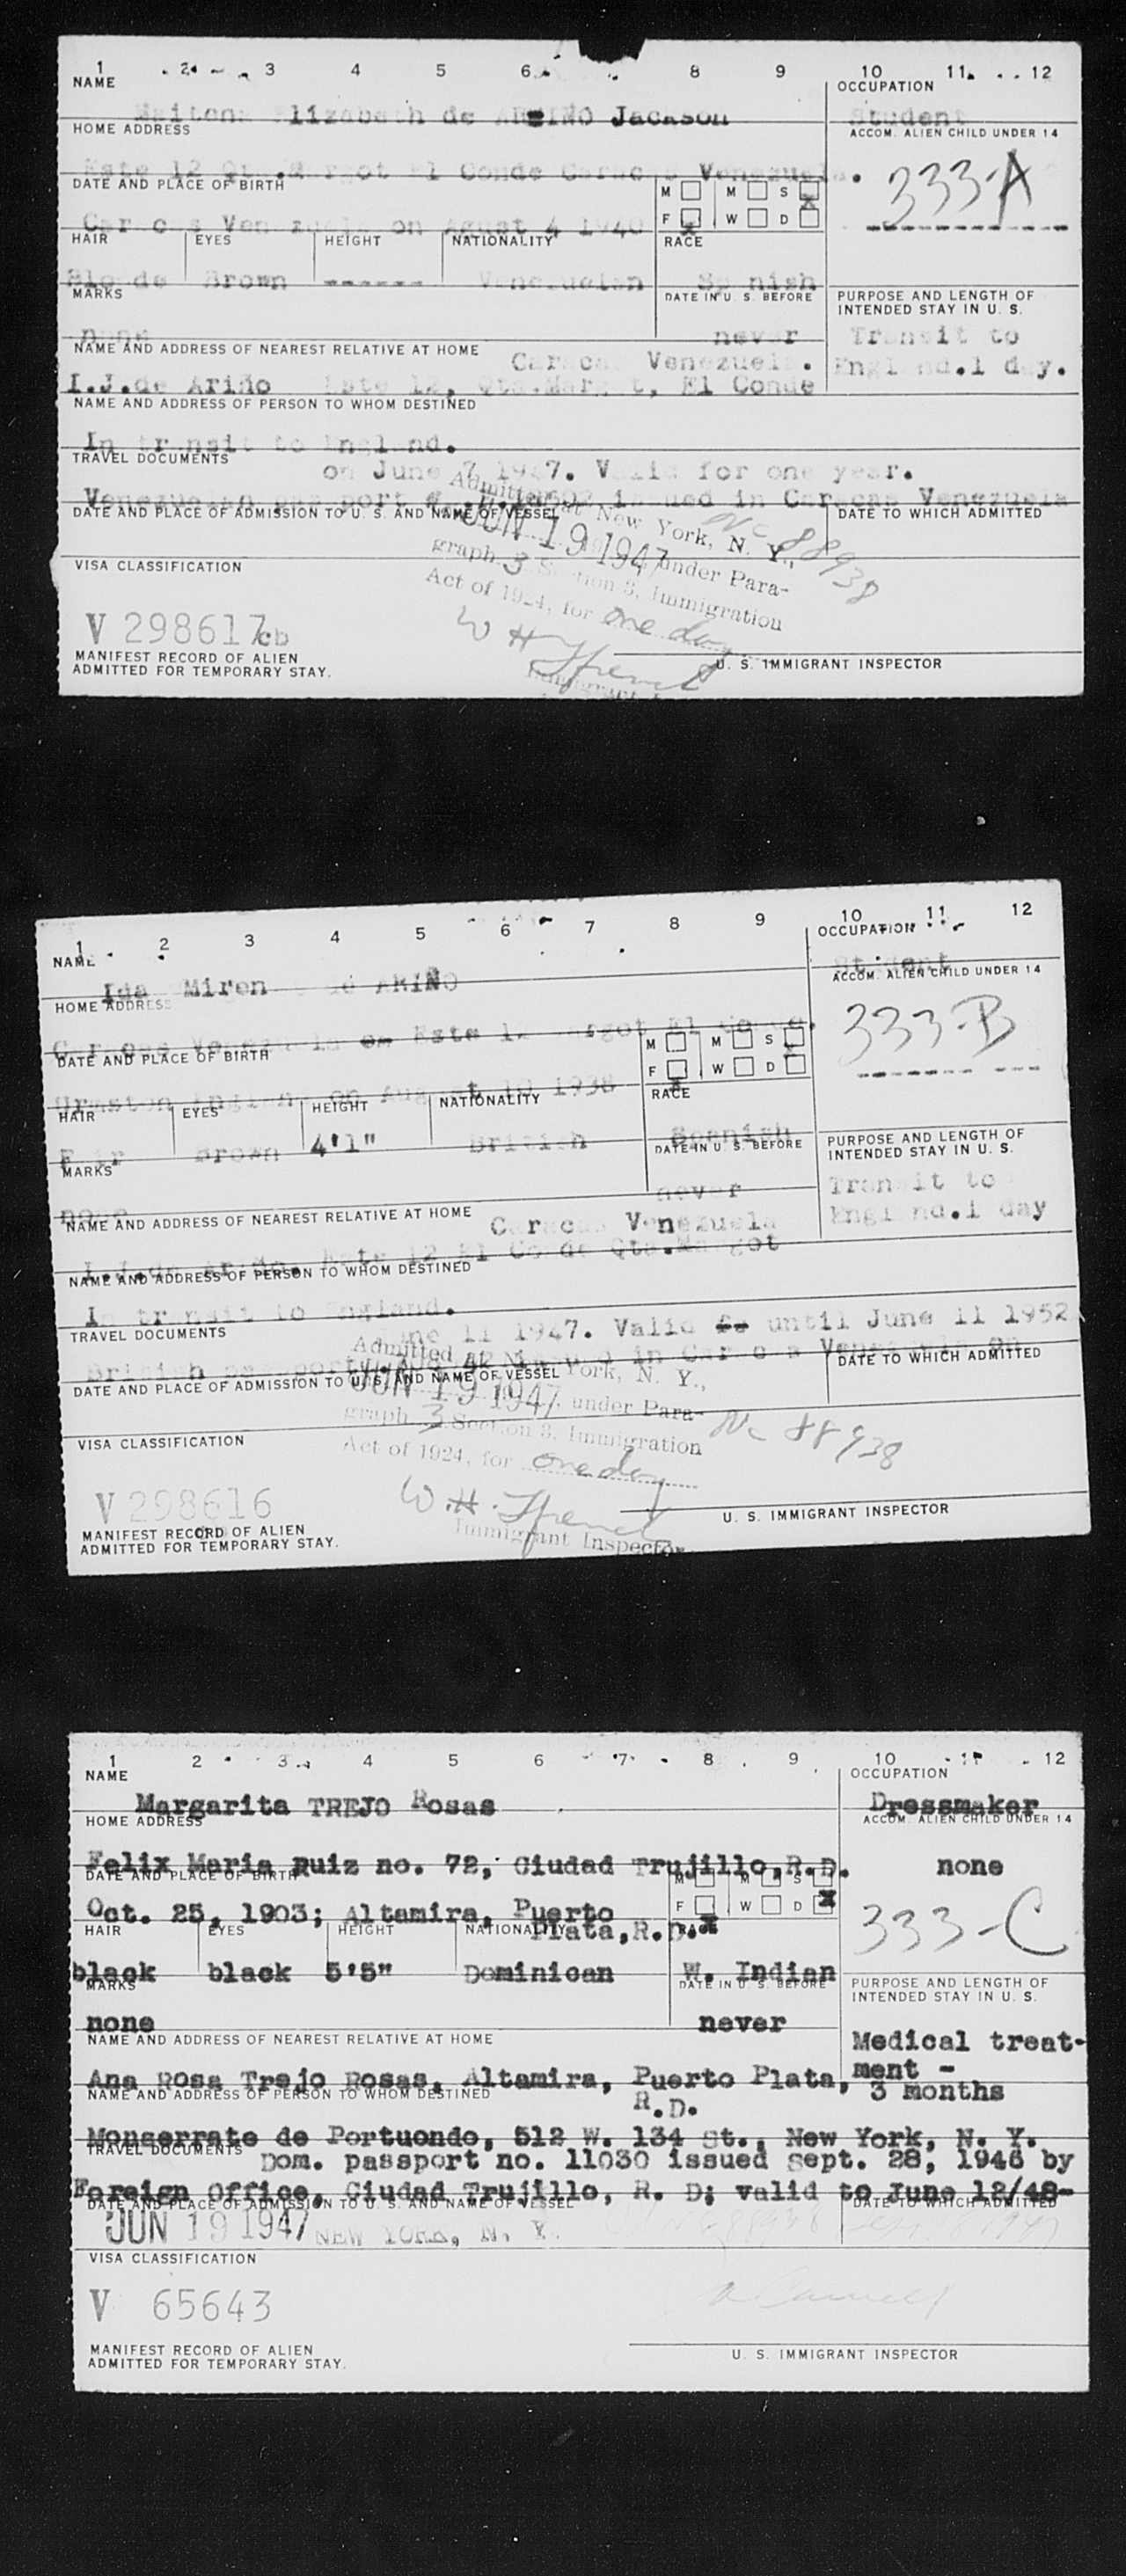 1 2 3 4 5 6 8 9 10 11 12
NAME
OCCUPATION
Elizabeth de ARIÑO Jackson
Student
HOME ADDRESS
ACCOM. ALIEN CHILD UNDER 14
Este 12 Qta.Margot El Conde Caracas Venezuela.
333-A
DATE AND PLACE OF BIRTH
M M S
Caracas Venezuela on Agust 4 1940
F W D
HAIR EYES HEIGHT NATIONALITY RACE
Blonde Brown ------ Venezuelan Spanish
MARKS
DATE IN U. S. BEFORE
PURPOSE AND LENGTH OF
INTENDED STAY IN U. S.
none
never
Transit to
NAME AND ADDRESS OF NEAREST RELATIVE AT HOME
Caracas Venezuela.
England.1 day.
I.J.de Ariño Este 12, Qta.Margot, El Conde
NAME AND ADDRESS OF PERSON TO WHOM DESTINED
In transit to England.
TRAVEL DOCUMENTS
on June 7 1947. Valid for one year.
Venezuelan passport issued in Caracas Venezuela
DATE AND PLACE OF ADMISSION TO U. S. AND NAME OF VESSEL
DATE TO WHICH ADMITTED
Admitted at New York, N. Y.,
JUN 19 1947 under Para-
graph 3 Section 3, Immigration
Act of 1924, for one day
NC 88938
VISA CLASSIFICATION
V 298617cb
W H
MANIFEST RECORD OF ALIEN
ADMITTED FOR TEMPORARY STAY.
U. S. IMMIGRANT INSPECTOR
1 2 3 4 5 6 7 8 9 10 11 12
NAME
OCCUPATION
Ida Miren de ARIÑO
Student
HOME ADDRESS
ACCOM. ALIEN CHILD UNDER 14
Caracas Venezuela Este 12 Margot El Conde.
333-B
DATE AND PLACE OF BIRTH
M M S
Urmston England on August 10 1938
F W D
HAIR EYES HEIGHT NATIONALITY RACE
Fair Brown 4'1" British Spanish
MARKS
DATE IN U. S. BEFORE
PURPOSE AND LENGTH OF
INTENDED STAY IN U. S.
none
never
Transit to
NAME AND ADDRESS OF NEAREST RELATIVE AT HOME
Caracas Venezuela
England.1 day
I.J.de Ariño. Este 12 El Conde Qta.Margot
NAME AND ADDRESS OF PERSON TO WHOM DESTINED
In transit to England.
TRAVEL DOCUMENTS
June 11 1947. Valid until June 11 1952
British passport issued in Caracas Venezuela on
DATE AND PLACE OF ADMISSION TO U. S. AND NAME OF VESSEL
DATE TO WHICH ADMITTED
Admitted at New York, N. Y.,
JUN 19 1947 under Para-
graph 3 Section 3, Immigration
Act of 1924, for one day
NC 88938
VISA CLASSIFICATION
V 298616
W.H.
Immigrant Inspector
MANIFEST RECORD OF ALIEN
ADMITTED FOR TEMPORARY STAY.
U. S. IMMIGRANT INSPECTOR
1 2 3 4 5 6 7 8 9 10 11 12
NAME
OCCUPATION
Margarita TREJO Rosas
Dressmaker
HOME ADDRESS
ACCOM. ALIEN CHILD UNDER 14
Felix Maria Ruiz no. 72, Ciudad Trujillo,R.D.
none
DATE AND PLACE OF BIRTH
M M S
Oct. 25, 1903; Altamira, Puerto
F W D
Plata,R.D.
333-C
HAIR EYES HEIGHT NATIONALITY RACE
black black 5'5" Dominican W. Indian
MARKS
DATE IN U. S. BEFORE
PURPOSE AND LENGTH OF
INTENDED STAY IN U. S.
none
never
NAME AND ADDRESS OF NEAREST RELATIVE AT HOME
Medical treat-
ment -
3 months
Ana Rosa Trejo Rosas, Altamira, Puerto Plata,
R.D.
NAME AND ADDRESS OF PERSON TO WHOM DESTINED
Monserrate de Portuondo, 512 W. 134 St., New York, N. Y.
TRAVEL DOCUMENTS
Dom. passport no. 11030 issued Sept. 28, 1946 by
Foreign Office, Ciudad Trujillo, R. D; valid to June 12/48-
DATE AND PLACE OF ADMISSION TO U. S. AND NAME OF VESSEL
DATE TO WHICH ADMITTED
JUN 19 1947 NEW YORK, N. Y.
VISA CLASSIFICATION
V 65643
MANIFEST RECORD OF ALIEN
ADMITTED FOR TEMPORARY STAY.
U. S. IMMIGRANT INSPECTOR